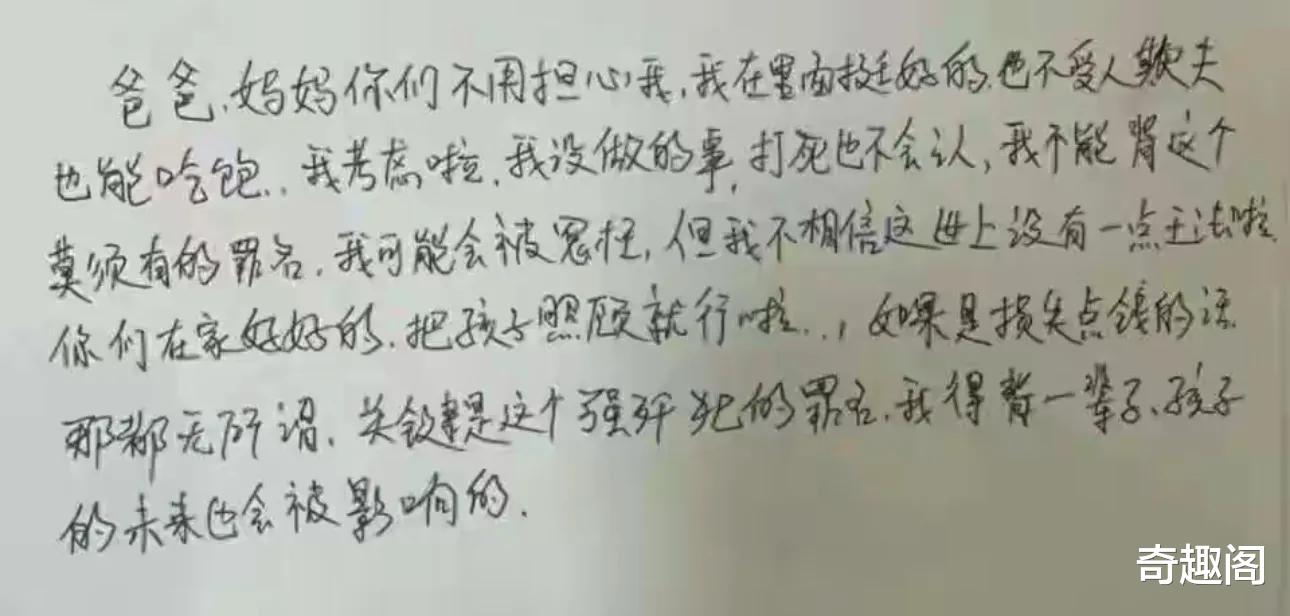 爸爸、妈妈你们不用担心我，我在里面挺好的.也不受人欺夫
也能吃饱.. 我考虑啦，我没做的事，打死也不会认，我不能背这个
莫须有的罪名，我可能会被冤枉，但我不相信这世上没有一点王法啦.
你们在家好好的.把孩子照顾就行啦..，如果是损失点钱的话
那都无所谓，关键是这个强奸犯的罪名，我得背一辈子、孩子
的未来也会被影响的.
奇趣阁